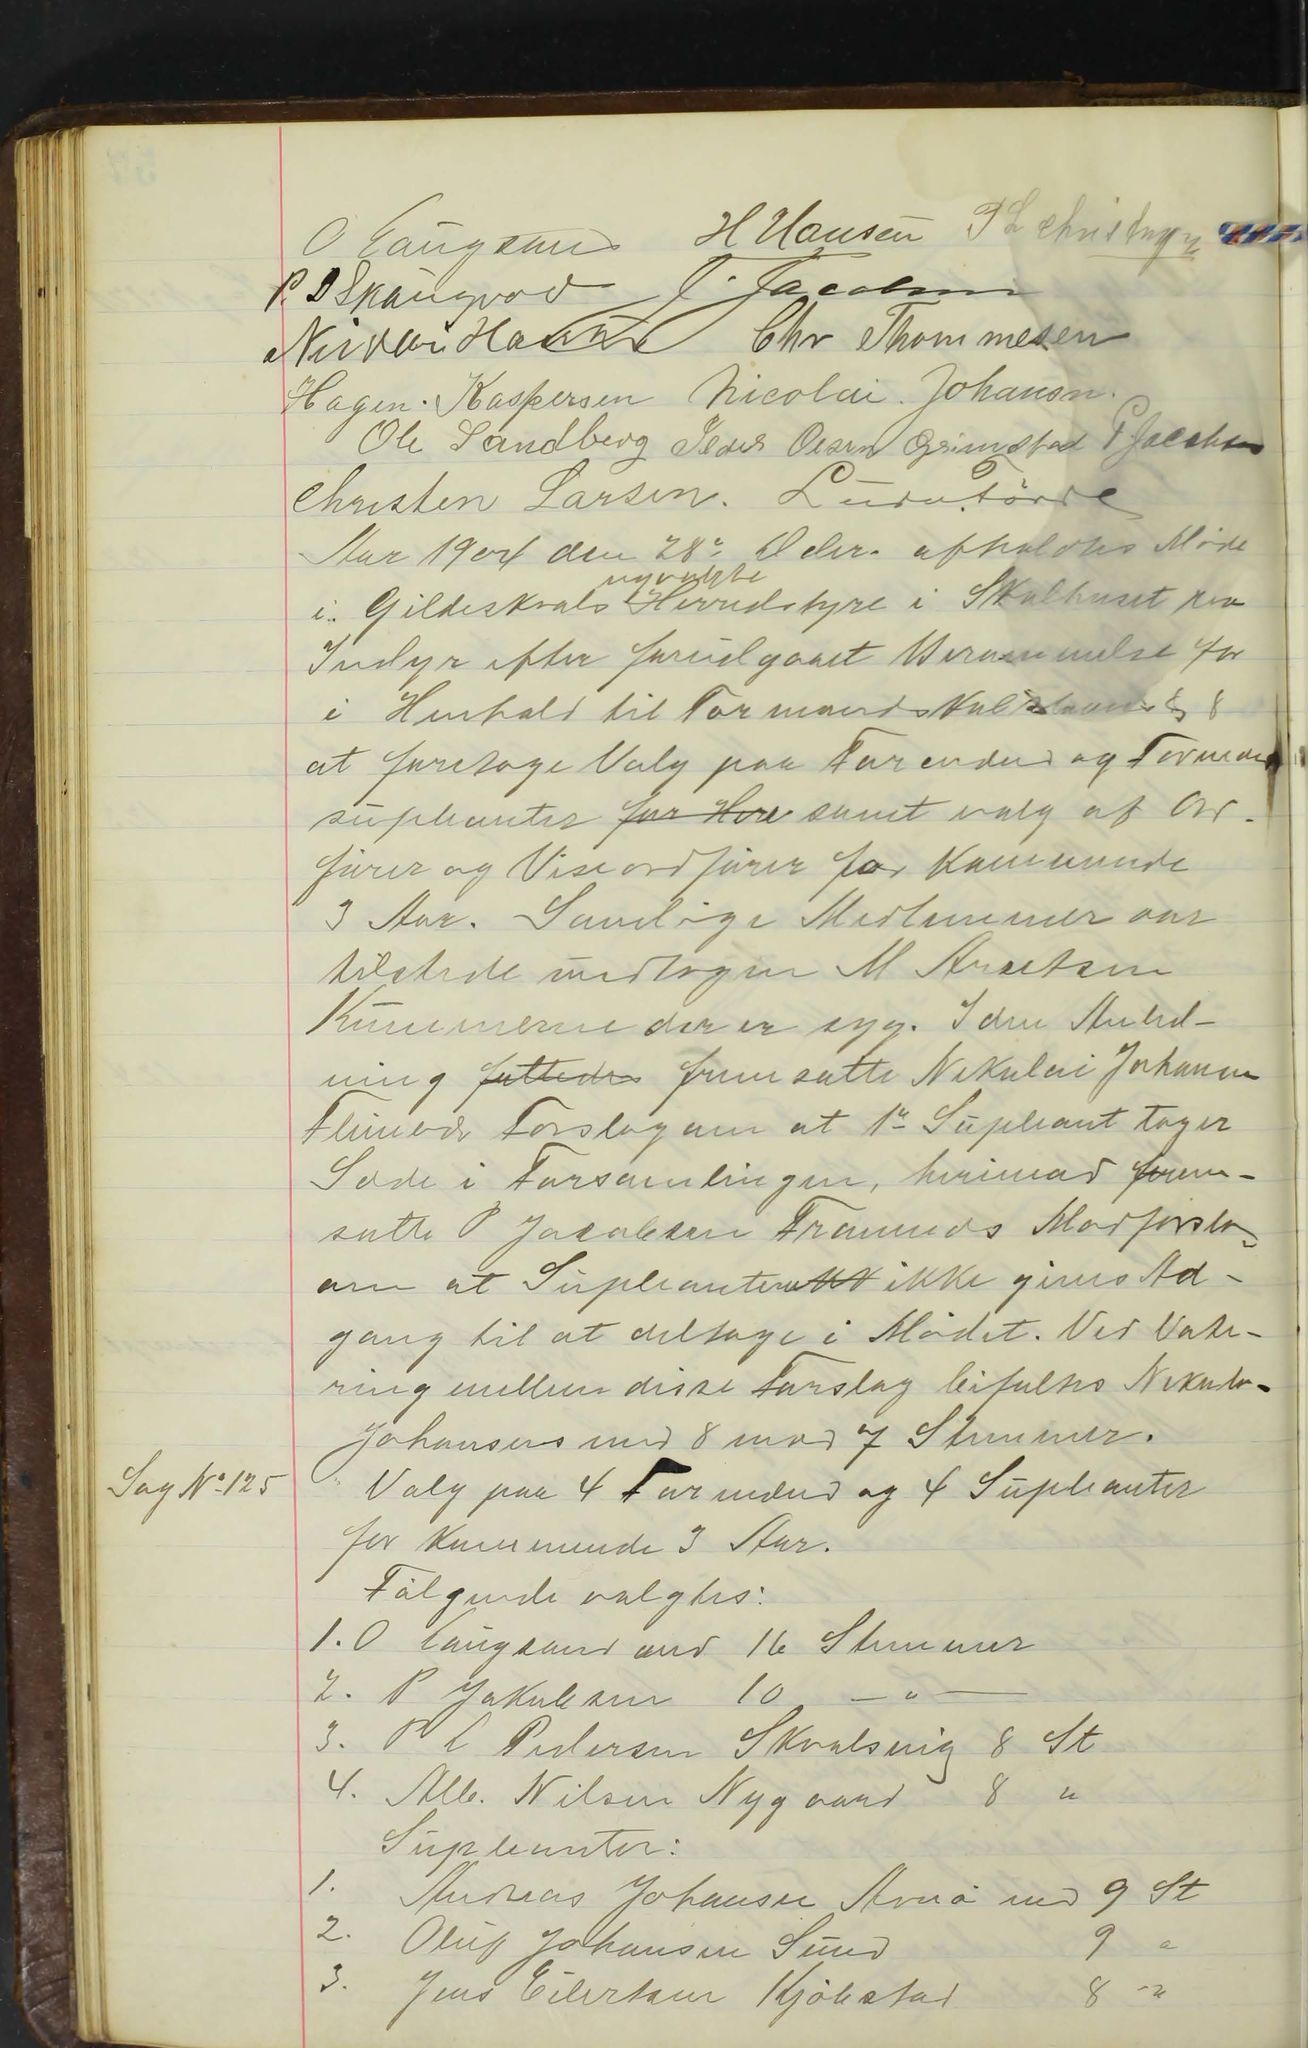 O Langsand H Hansen P L Christensen
P. D Skaugvod J. Jacobsen
Nicolai Hansen Chr Thommesen
Hagen. Kaspersen Nicolai. Johansn.
Ole Sandberg Peder Olsen Grimstad P Jacobsen
Christen Larsen.
Aar 1904 den 28de Decbr. afholdtes Møde
i Gildeskaals nyvalgte Herredstyre i Skolhuset paa
Indyr efter forudgaaet Berammelse for
i Henhold til Formandskabslovens § 8
at foretage Valg paa Formænd og Formænd
supleanter for Here samt valg af Ord-
fører og Viseordfører for Kommende
3 Aar. Samtlige Medlemmer var
tilstede undtagen M Arntsen
der er syg. I den Anled-
ning fattedes fremsatte Nikolai Johansen
Forslag om at 1ste Supleant tager
Sæde i Forsamlingen, herimod frem-
satte P Jacobsen Modforslag
om at Supleanten ikke gives Ad-
gang til at deltage i Mødet. Ved Vote-
ring mellem disse Forslag bifaltes Nikolai
Johansens med 8 mod 7 Stemmer.
Sag No 125 Valg paa 4 Formænd og 4 Supleanter
for kommende 3 Aar.
Følgende valgtes:
1. O Langsand med 16 Stemmer
2. P Jakobsen 10 —"—
3. P L Pedersen Skvalsvig 8 St
4. Alb. Nilsen Nygaard 8 "
Supleanter:
1. Andreas Johansen Arnø med 9 St
2. Oluf Johansen Sund 9 "
3. Jens Eilertsen Kjøbstad 8 "